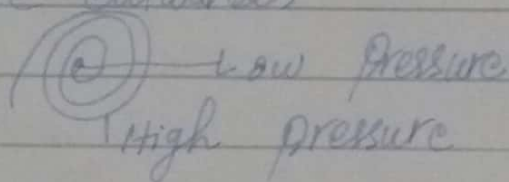 Low Pressure
High pressure